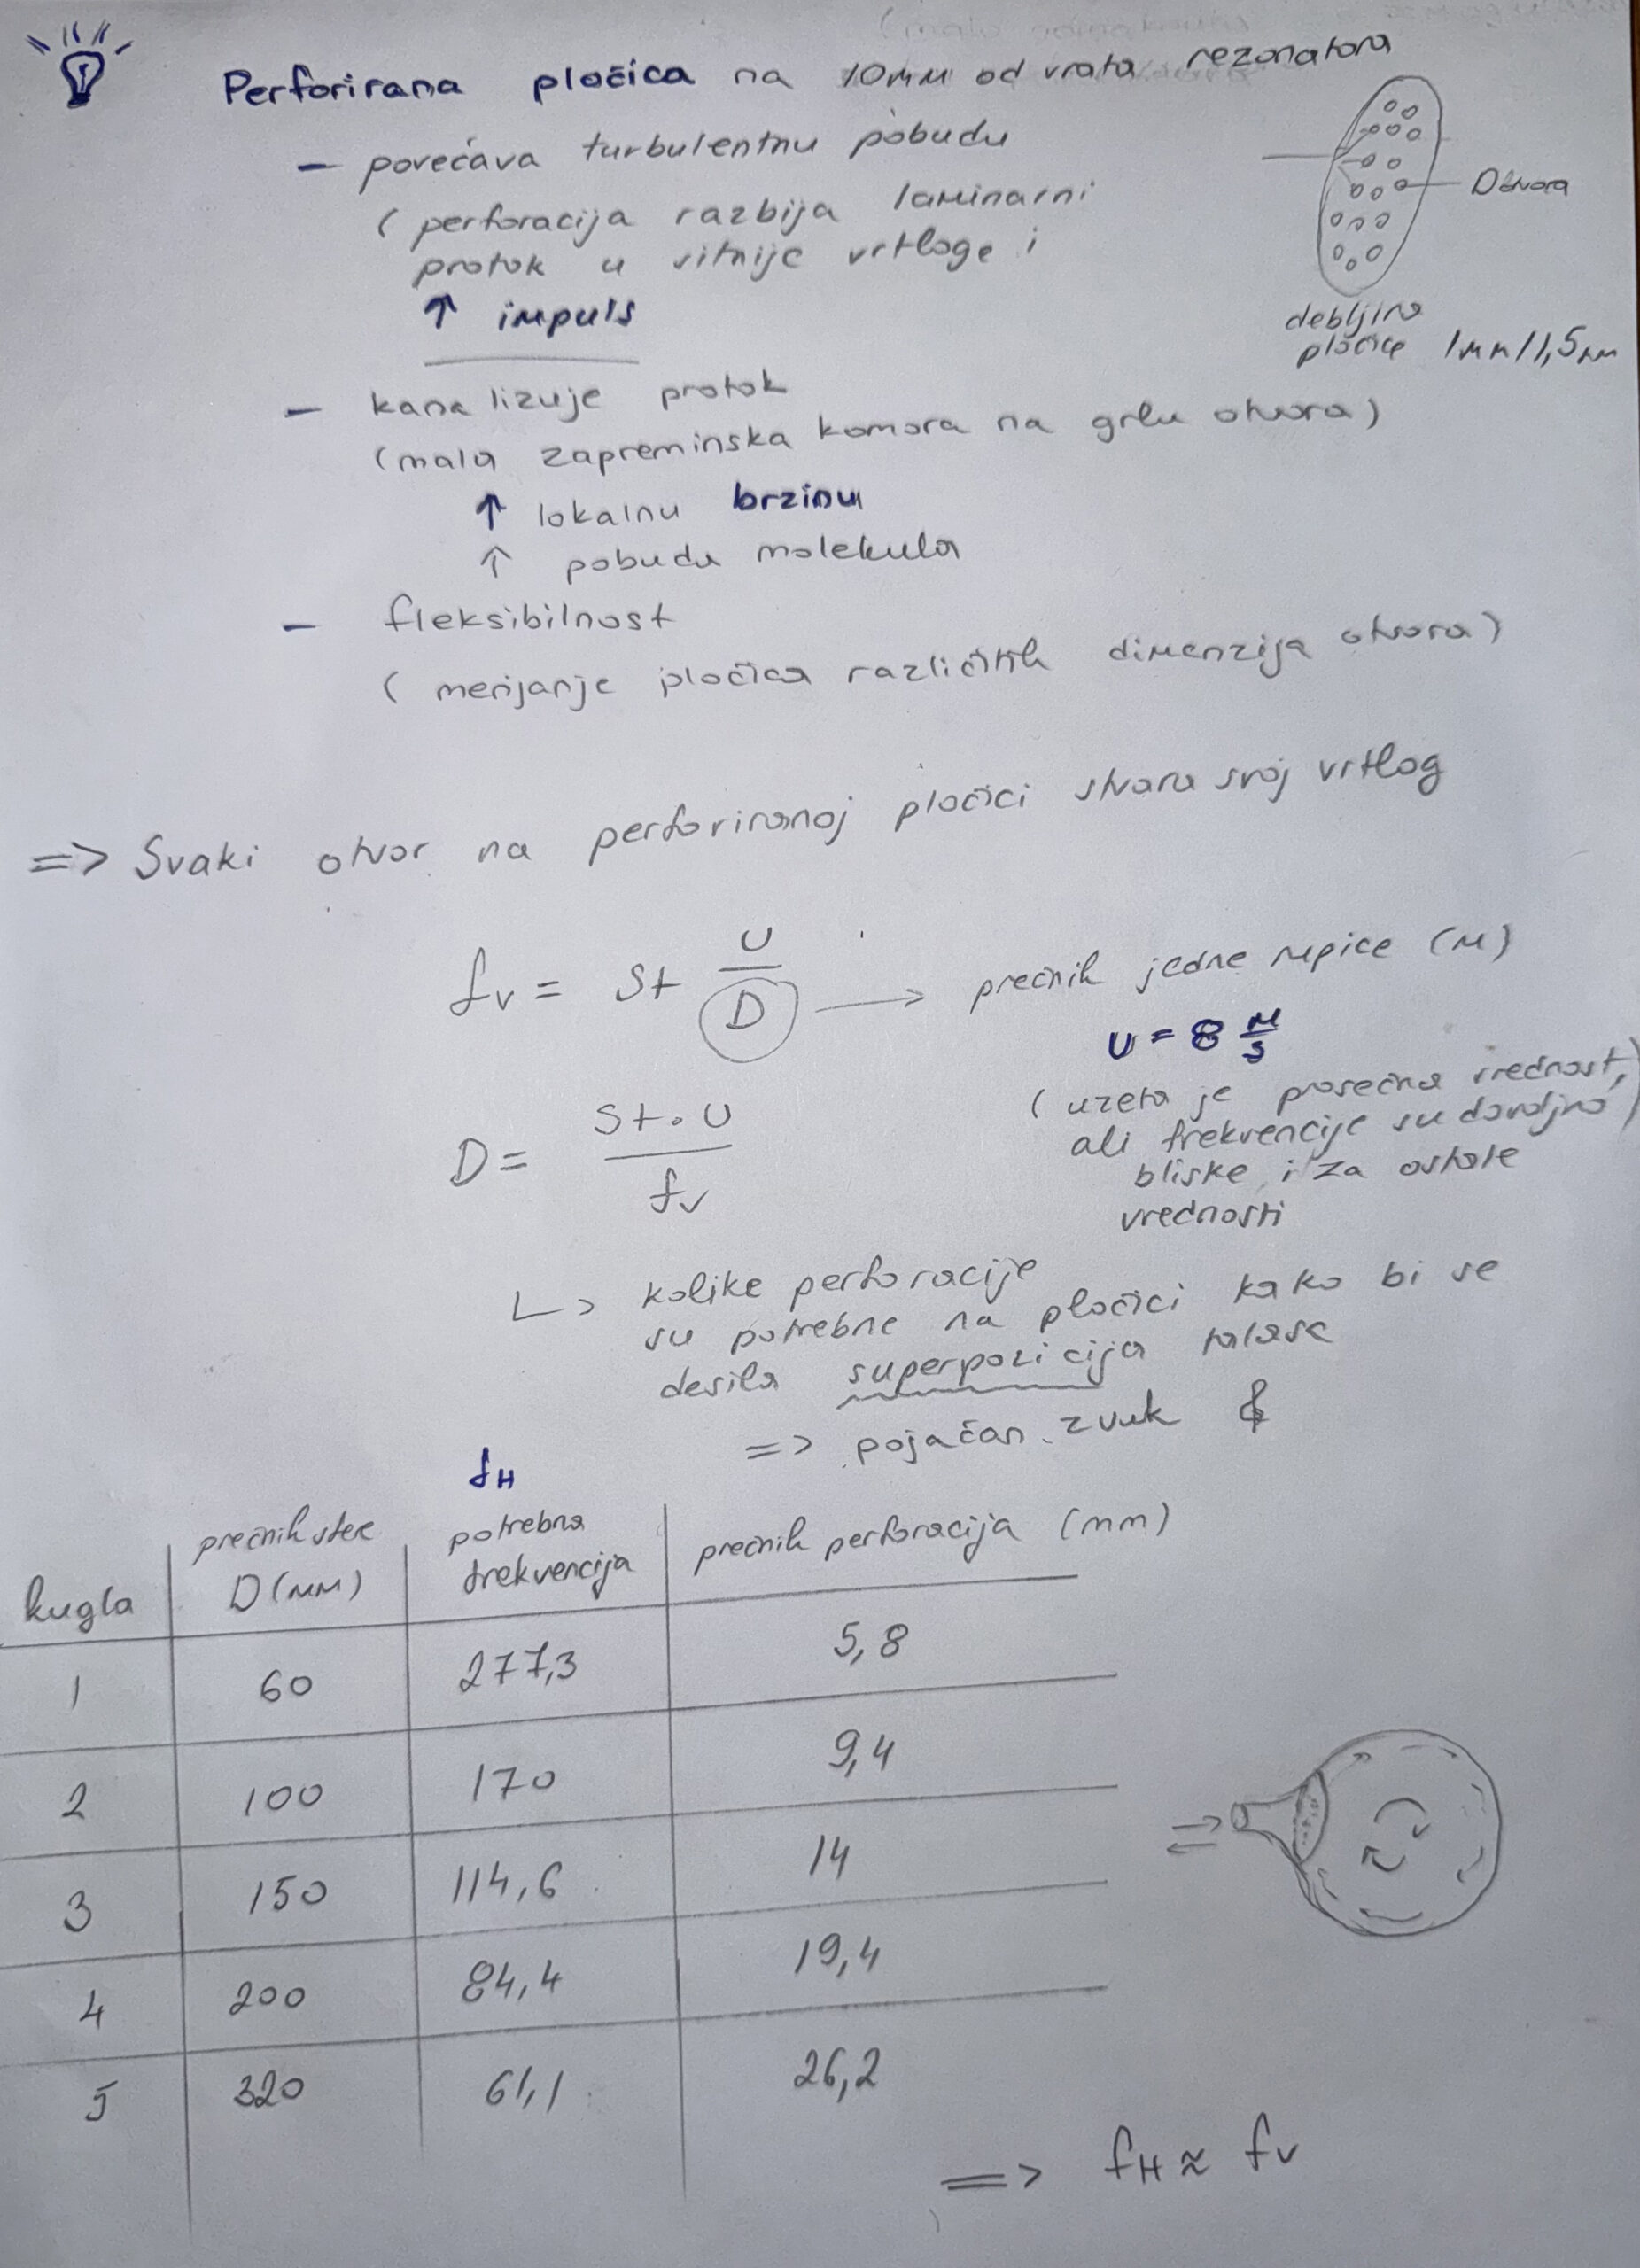 Perforirana pločica na 10mm od vrata rezonatora
- povećava turbulentnu pobudu
( perforacija razbija laminarni
protok u sitnije vrtloge i
↑ impuls
Dotvora
debljina
pločice 1mm/1,5mm
- kanalizuje protok
(mala zapreminska komora na grlu otvora)
↑ lokalnu brzinu
↑ pobudu molekula
- fleksibilnost
( menjanje pločica različitih dimenzija otvora)
=> Svaki otvor na perforiranoj pločici stvara svoj vrtlog
fv = St U/D → prečnik jedne rupice (m)
U = 8 m/s
( uzeta je prosečna vrednost,
ali frekvencije su dovoljno)
bliske i za ostale
vrednosti
D = St·U/fv
↳ kolike perforacije
su potrebne na pločici kako bi se
desila superpozicija talasa
=> pojačan zvuk
fH
kugla | prečnik sfere D(mm) | potrebna frekvencija | prečnik perforacija (mm)
1 | 60 | 277,3 | 5,8
2 | 100 | 170 | 9,4
3 | 150 | 114,6 | 14
4 | 200 | 84,4 | 19,4
5 | 320 | 61,1 | 26,2
=> fH ≈ fv